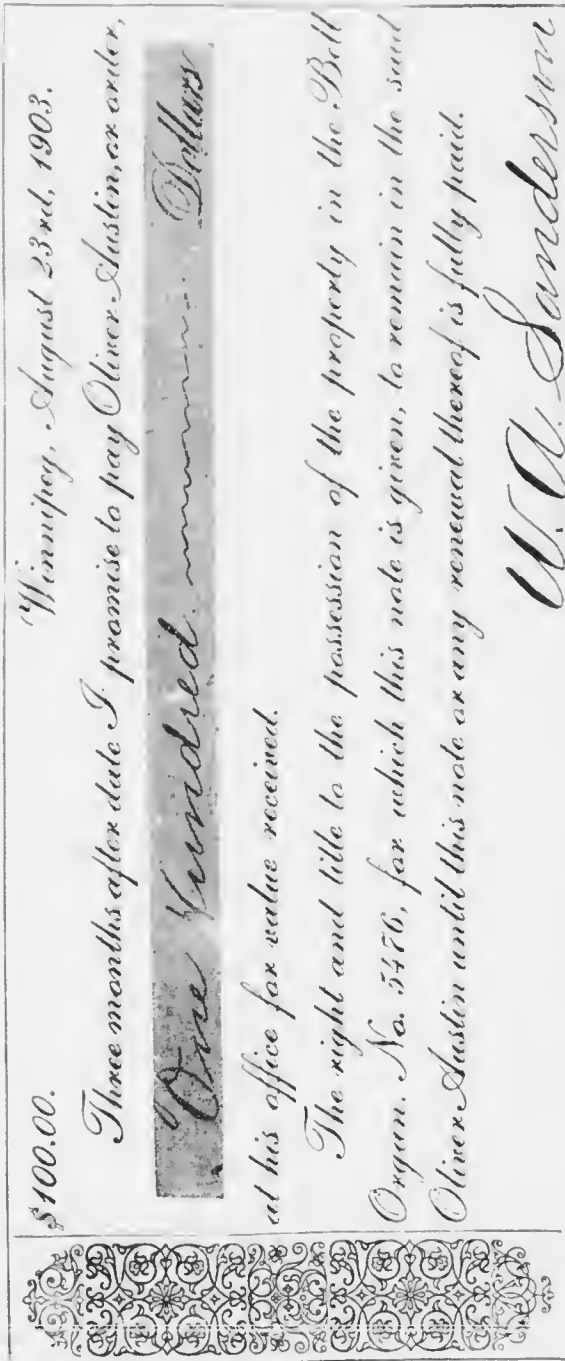 $100.00. Winnipeg, August 23rd, 1903.
Three months after date I promise to pay Oliver Austin, or order,
One Hundred Dollars
at his office for value received.
The right and title to the possession of the property in the Bell
Organ. No. 5476, for which this note is given, to remain in the said
Oliver Austin until this note or any renewal thereof is fully paid.
W. A. Sanderson